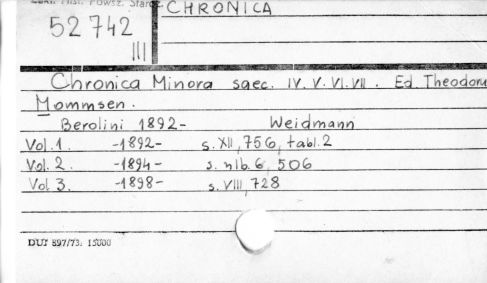 Hist. Powsz. Staroż.
CHRONICA
52 742
III
Chronica Minora saec. IV. V. VI. VII. Ed. Theodoru
Mommsen.
Berolini 1892- Weidmann
Vol. 1. -1892- s. XII, 756, tabl. 2
Vol. 2. -1894- s. nlb. 6, 506
Vol 3. -1898- s. VIII, 728
DUJ 897/73. 15000